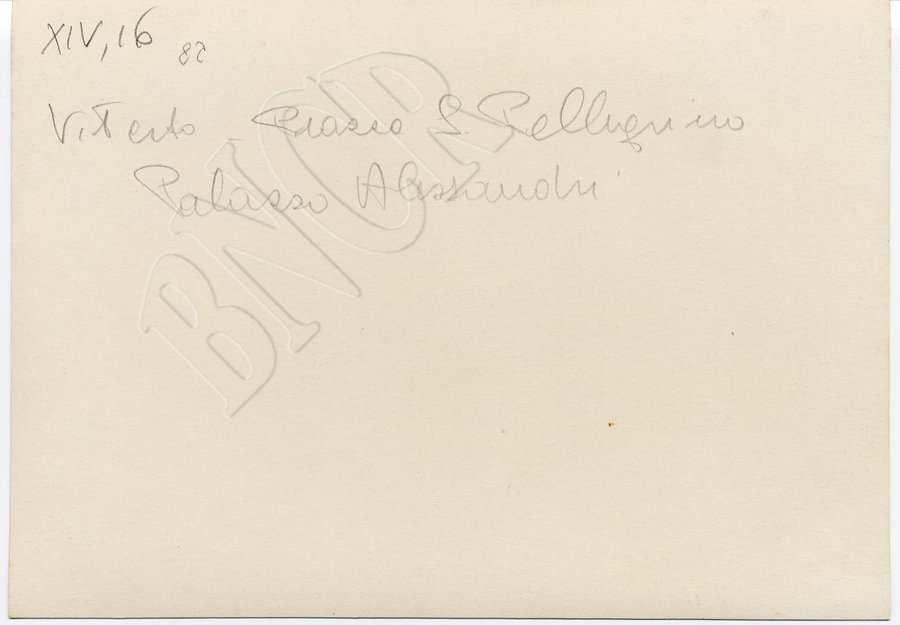 XIV, 16 82
Viterbo Piazza S. Pellegrino
Palazzo Alessandri
BNCR